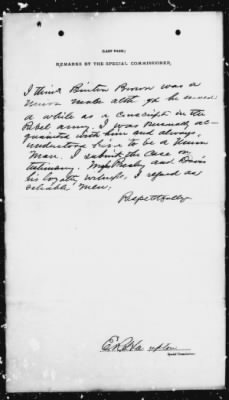 (LAST PAGE.)
REMARKS BY THE SPECIAL COMMISSIONER.
I think Brown was a
Union man altho' he served
a while as a Conscript in the
Rebel army. I was personally ac-
quainted with him and always
understood him to be a Union
Man. I submit the Case on
testimony. and Davis
his loyalty witnesses, I regard as
reliable men.
Respectfully
Special Commissioner.